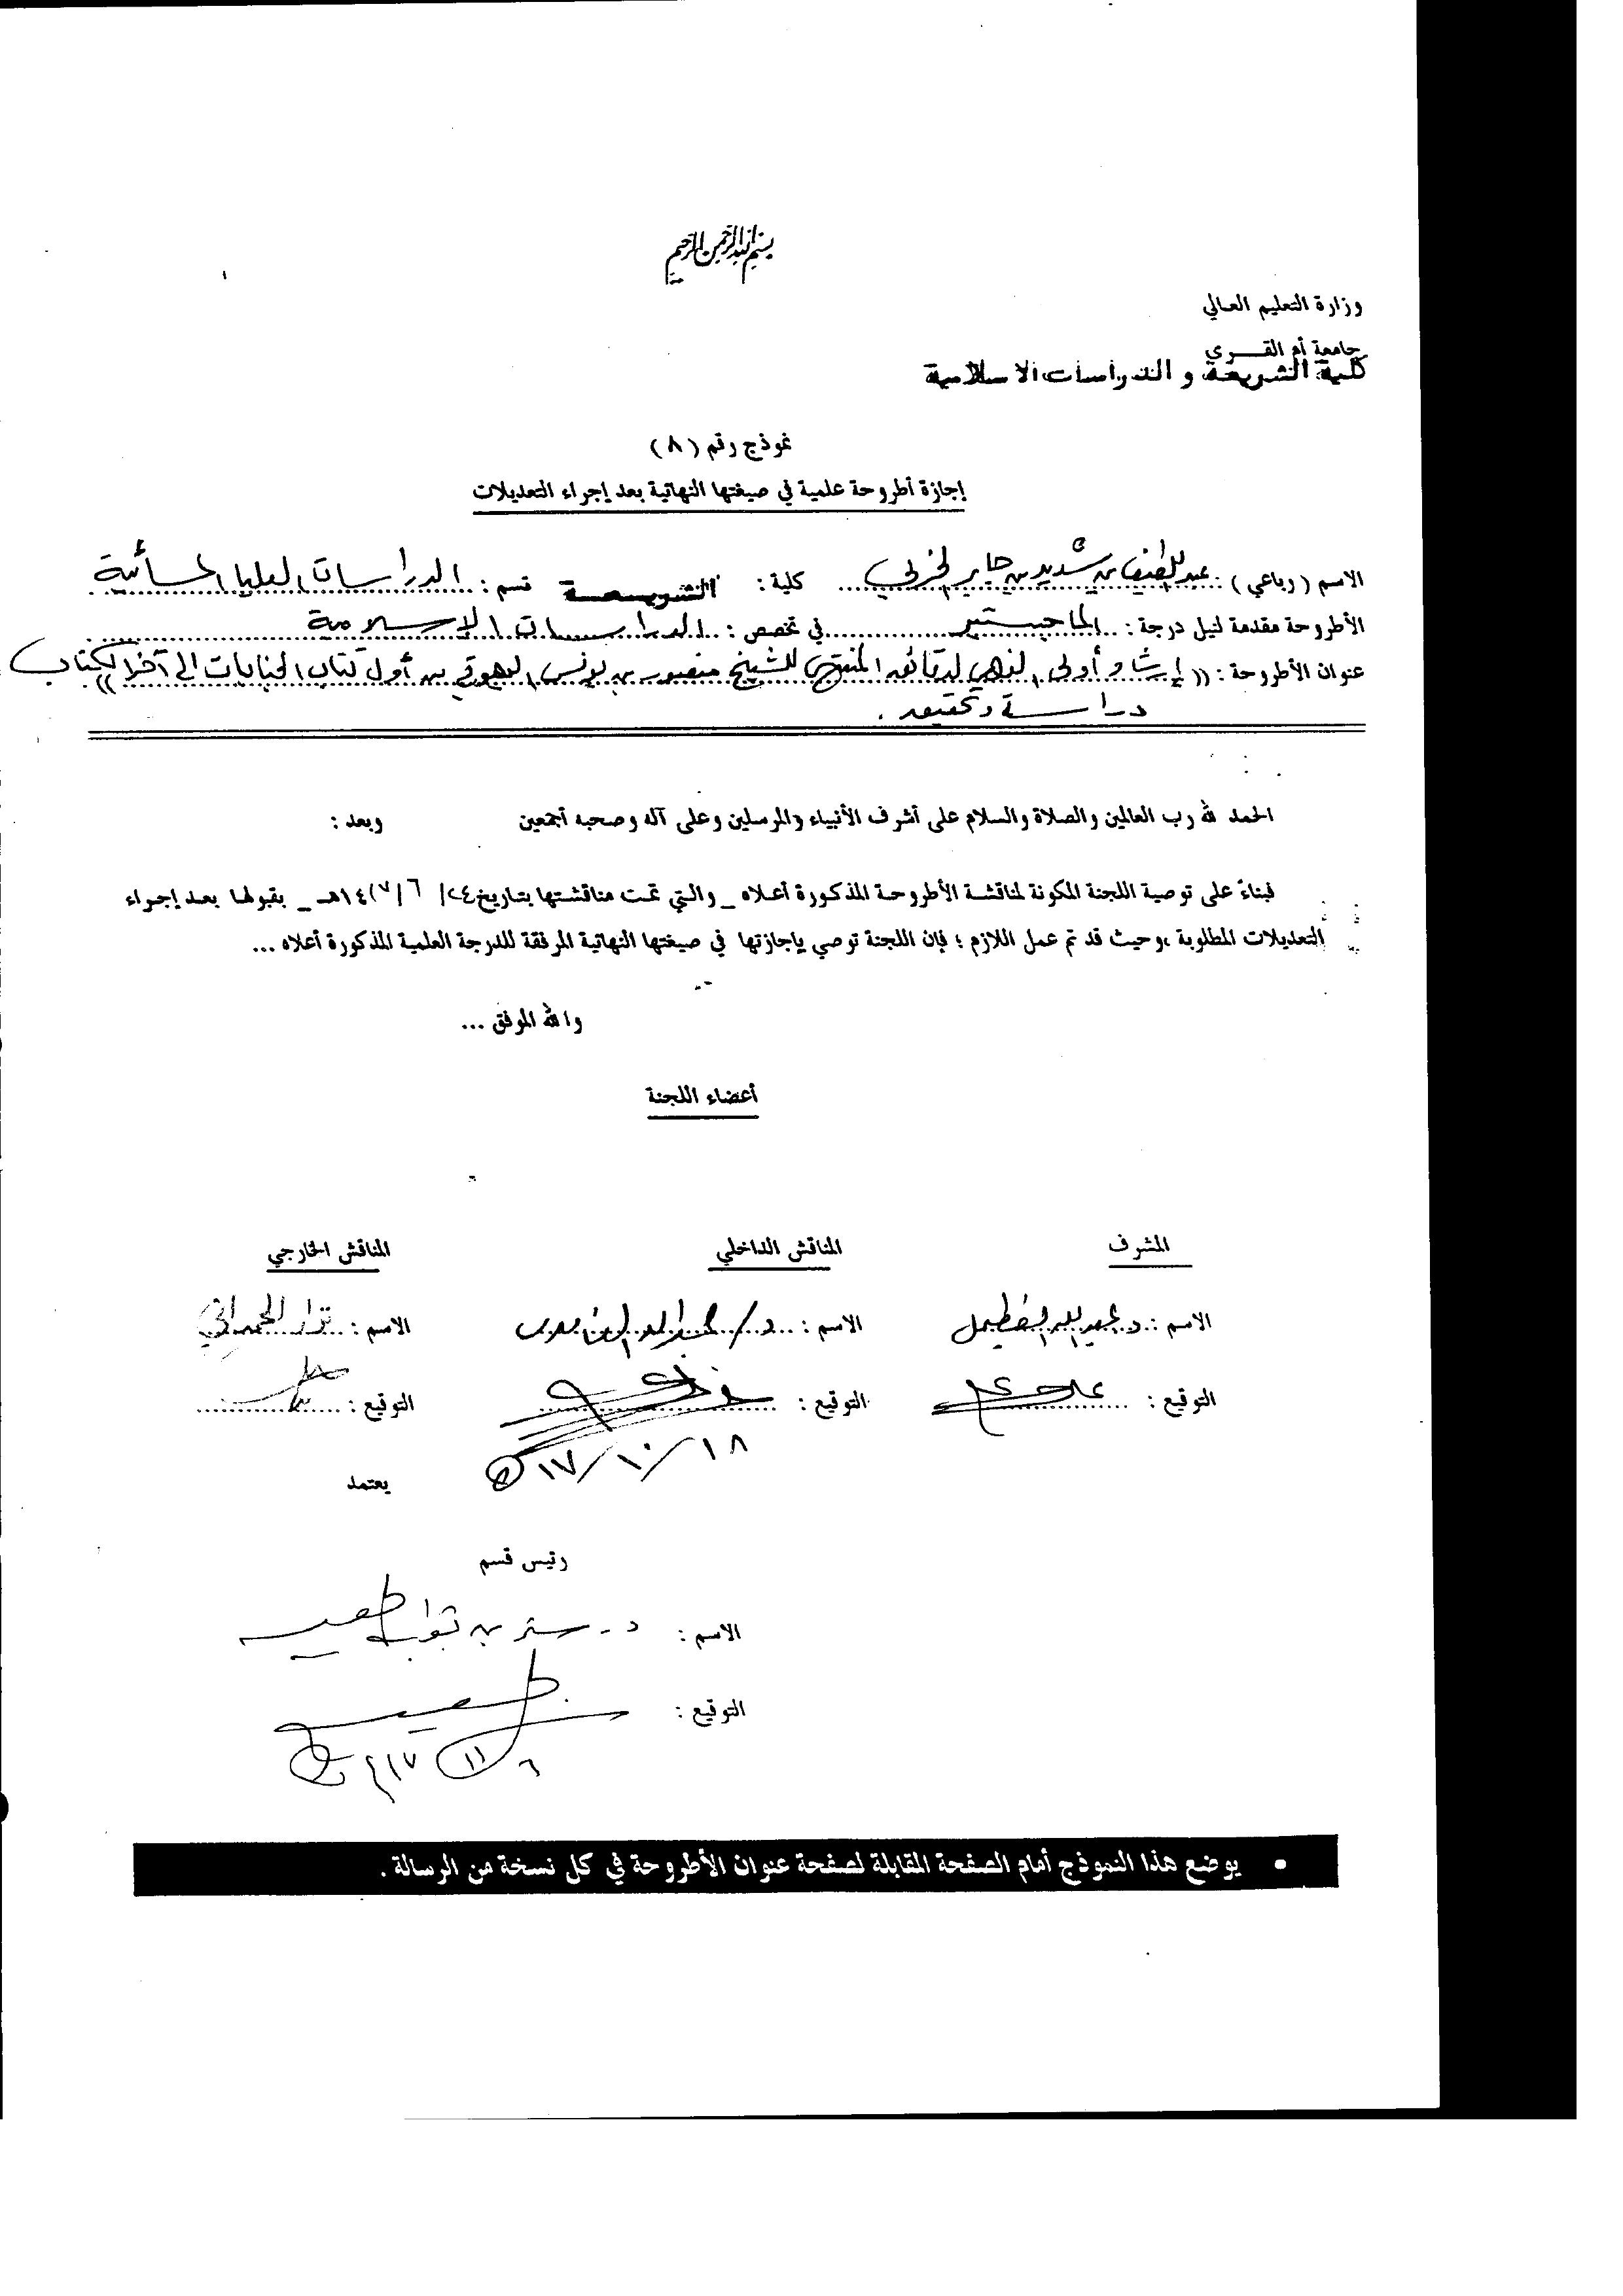 بسم الله الرحمن الرحيم
وزارة التعليم العالي
جامعة أم القـــرى
كلية الشريعة و الدراسات الاسلامية
نموذج رقم (٨)
إجازة أطروحة علمية في صيغتها النهائية بعد إجراء التعديلات
الاسم (رباعي) : عبد اللطيف بن شديد بن جابر الحربي كلية : الشريعة قسم : الدراسات العليا المسائية
الأطروحة مقدمة لنيل درجة : الماجستير في تخصص : الدراسات الإسلامية
عنوان الأطروحة : (( إرشاد أولي النهى لدقائق المنتهى للشيخ منصور بن يونس البهوتي من أول كتاب الجنايات إلى آخر الكتاب ))
دراسة وتحقيق .
الحمد لله رب العالمين والصلاة والسلام على أشرف الأنبياء والمرسلين وعلى آله وصحبه أجمعين وبعد :
فبناءً على توصية اللجنة المكونة لمناقشة الأطروحة المذكورة أعلاه _ والتي تمت مناقشتها بتاريخ ٢٤/ ٦ /١٤١٧هـ _ بقبولها بعد إجراء
التعديلات المطلوبة ،وحيث قد تم عمل اللازم ؛ فإن اللجنة توصي بإجازتها في صيغتها النهائية المرفقة للدرجة العلمية المذكورة أعلاه ...
والله الموفق ...
أعضاء اللجنة
المشرف المناقش الداخلي المناقش الخارجي
الاسم : د. عبد الله الغطيمل الاسم : د/ عبد الله الاسم : نزار الحمداني
التوقيع : التوقيع : التوقيع :
١٨/١٠/١٧هـ
يعتمد
رئيس قسم
الاسم : د. ستر بن ثواب الجعيد
التوقيع :
٦ / ١١ / ٤١٧
• يوضع هذا النموذج أمام الصفحة المقابلة لصفحة عنوان الأطروحة في كل نسخة من الرسالة .